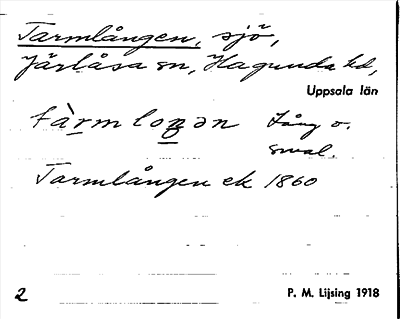 Tarmlången, sjö,
Järlåsa sn, Hagunda hd,
Uppsala län
tàrmloŋən Lång o.
smal.
Tarmlången ek 1860
2 P. M. Lijsing 1918